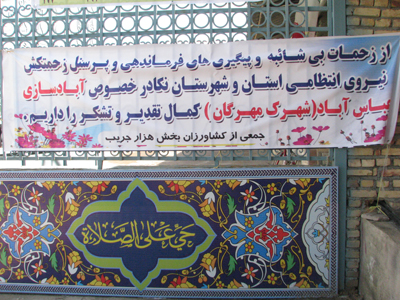 از زحمات بی شائبه و پیگیری های فرماندهی و پرسنل زحمتکش
نیروی انتظامی استان و شهرستان نکادر خصوص آبادسازی
عباس آباد(شهرک مهرگان) کمال تقدیر و تشکر را داریم.
جمعی از کشاورزان بخش هزار جریب
حی علی الصلاة